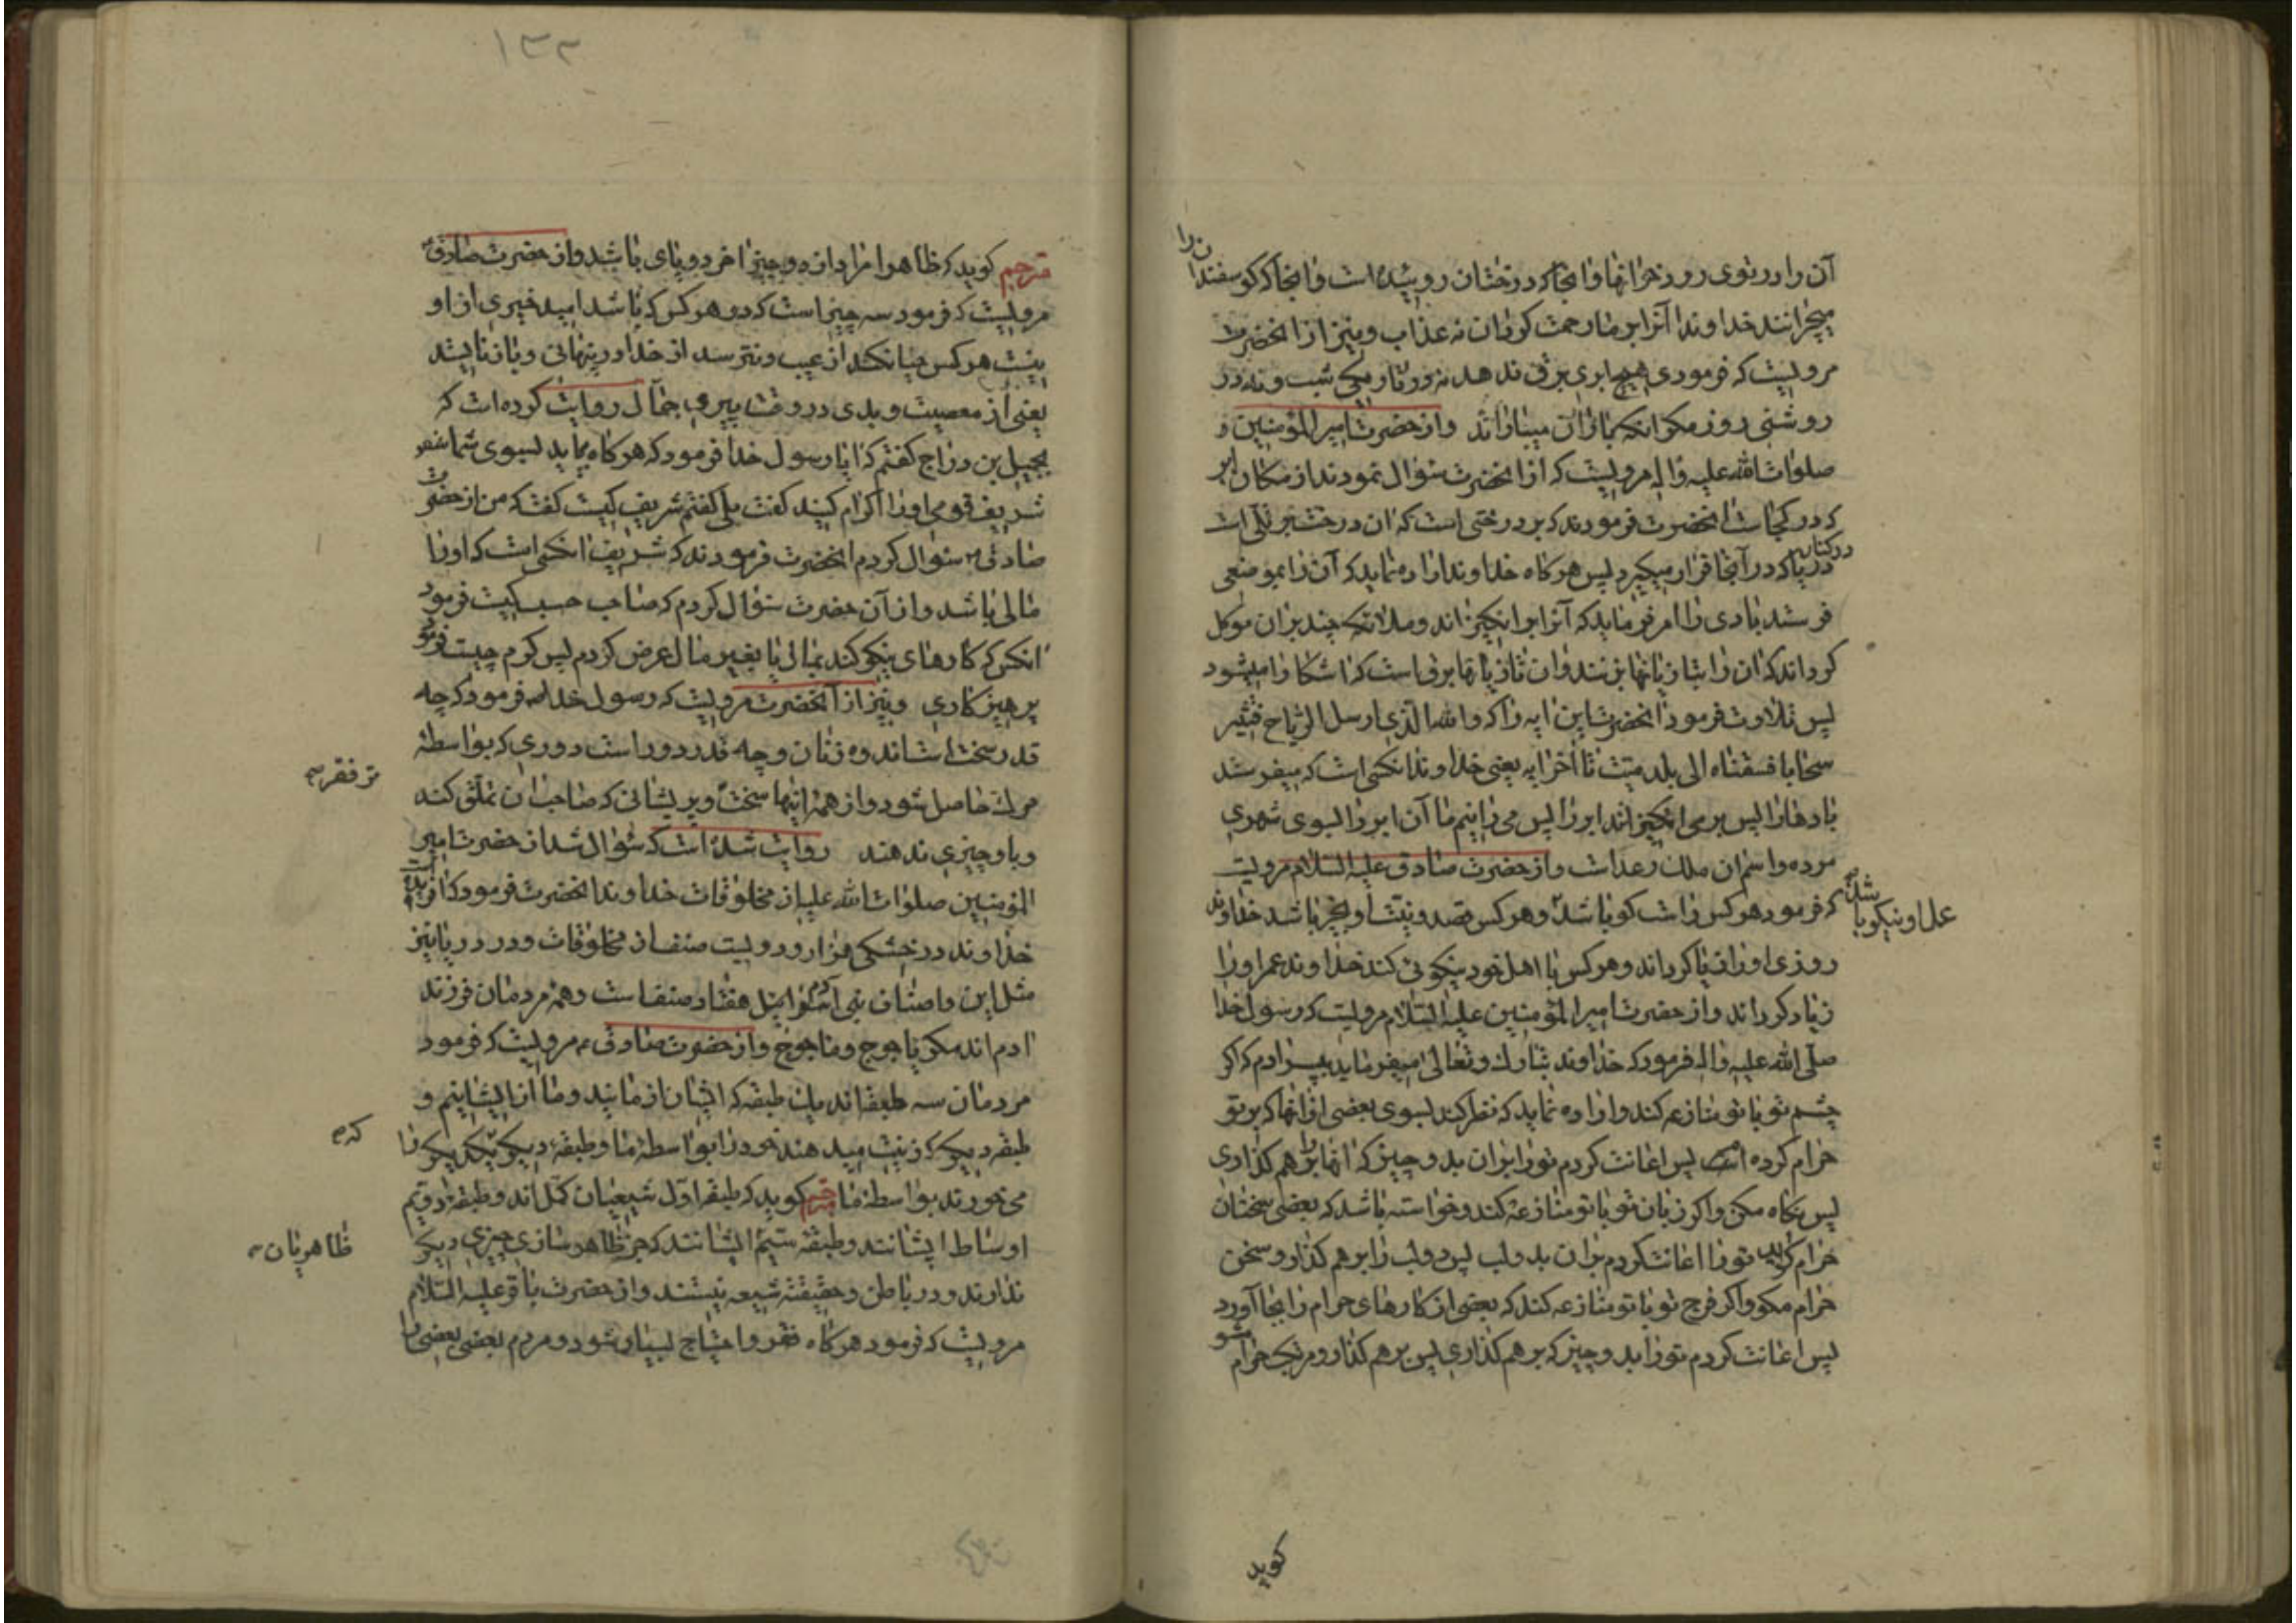 آن را در توی رودخرانها و انجا که درختان روییده است و انجا که کوسفندان را
میچرانند خداوندا آنرا بر ما رحمت کردان نه عذاب و نیز از انحضرت
مرویست که فرمودی هیچ ابری برق ندهد نه در تاریکی شب و نه در
روشنی روز مکر انکه باران میباراند و از حضرت امیر المؤمنین
صلوات الله علیه و اله مرویست که از انحضرت سؤال نمودند از مکان ابر
که در کجاست انحضرت فرمودند که بر درختی است که ان درخت بر تلی است
در کنار دریا که در آنجا قرار میکیرد پس هرکاه خداوند اراده نماید که آن را بموضعی
فرستد بادی را امر فرماید که آنرا برانکیزاند و ملائکه چند بران موکل
کرداند که ان را بتازیانها بزنند و ان تازیانها برقی است که اشکارا میشود
پس تلاوت فرمود انحضرت این ایه را که والله الذی ارسل الریاح فتثیر
سحابا فسقناه الی بلد میت تا اخر ایه یعنی خداوند انکسی است که میفرستد
بادها را پس بر می انکیزانند ابر را پس میرانیم ما آن ابر را بسوی شهری
مرده و اسم ان ملک رعد است و از حضرت صادق علیه السلام مرویست
که فرمود هر کس راست کو باشد عمل او نیکو باشد و هر کس قصد و نیت او بخیر باشد خداوند
روزی او را زیاد کرداند و هر کس با اهل خود نیکوئی کند خداوند عمر او را
زیاد کرداند و از حضرت امیر المؤمنین علیه السلام مرویست که رسول خدا
صلی الله علیه و اله فرمود که خداوند تبارک و تعالی میفرماید بپسر ادم که اکر
چشم تو با تو منازعه کند و اراده نماید که نظر کند بسوی بعضی از انها که بر تو
حرام کرده است پس اعانت کردم تو را بران بدو چیز که انها را بر هم کذاری
پس نکاه مکن و اکر زبان تو با تو منازعه کند و خواسته باشد که بعضی سخنان
حرام کوید تو را اعانت کردم بران بدو لب پس دو لب را بر هم کذار و سخن
حرام مکو و اکر فرج تو با تو منازعه کند که بعضی از کارهای حرام را بجا آورد
پس اعانت کردم تو را بدو چیز که بر هم کذاری پس بر هم کذار و مرتکب حرام مشو
کوید
۱۳۲
مترجم کوید که ظاهرا مراد از دو چیز اخر دو پای باشد و از حضرت صادق ع
مرویست که فرمود سه چیز است که در هر کس که باشد امید خیری از او
نیست هر کس حیا نکند از عیب و نترسد از خدا در پنهانی و باز نایستد
یعنی از معصیت و بدی در وقت پیری جمال روایت کرده است که
بجمیل بن دراج کفتم که ایا رسول خدا فرمود که هرکاه بیاید بسوی شما
شریف قومی او را اکرام کنید کفت بلی کفتم شریف کیست کفت که من از حضرت
صادق ع سؤال کردم انحضرت فرمودند که شریف انکسی است که او را
مالی باشد و از آن حضرت سؤال کردم که صاحب حسب کیست فرمود
انکس که کارهای نیکو کند بمال یا بغیر مال عرض کردم پس کرم چیست فرمود
پرهیزکاری و نیز از آنحضرت مرویست که رسول خدا فرمود که چه
قدر سخت است اندوه زنان و چه قدر دور است دوری که بواسطه
مرک حاصل شود و از همه اینها سخت تر فقر و پریشانی که صاحب ان تملق کند
و باو چیزی ندهند روایت شده است که سؤال شد از حضرت امیر
المؤمنین صلوات الله علیه از مخلوقات خداوند انحضرت فرمود که افریده است
خداوند در خشکی هزار و دویست صنف از مخلوقات و در دریا نیز
مثل این و اصناف بنی آدم هفتاد صنف است و همه مردمان فرزند
ادم اند مکر یاجوج و ماجوج و از حضرت صادق ع مرویست که فرمود
مردمان سه طبقه اند یک طبقه که ایشان از مایند و ما از ایشانیم و
طبقه دیکر که زینت میدهند خود را بواسطه ما و طبقه دیکر که یکدیکر را
می خورند بواسطه ما مترجم کوید که طبقه اول شیعیان کمل اند و طبقه دویم
اوساط ایشانند و طبقه سیم ظاهریان ایشانند که جز ظاهر سازی چیزی دیکر
ندارند و در باطن و حقیقت شیعه نیستند و از حضرت باقر علیه السلام
مرویست که فرمود هرکاه فقر و احتیاج بسیار شود و مردم بعضی بعضی را